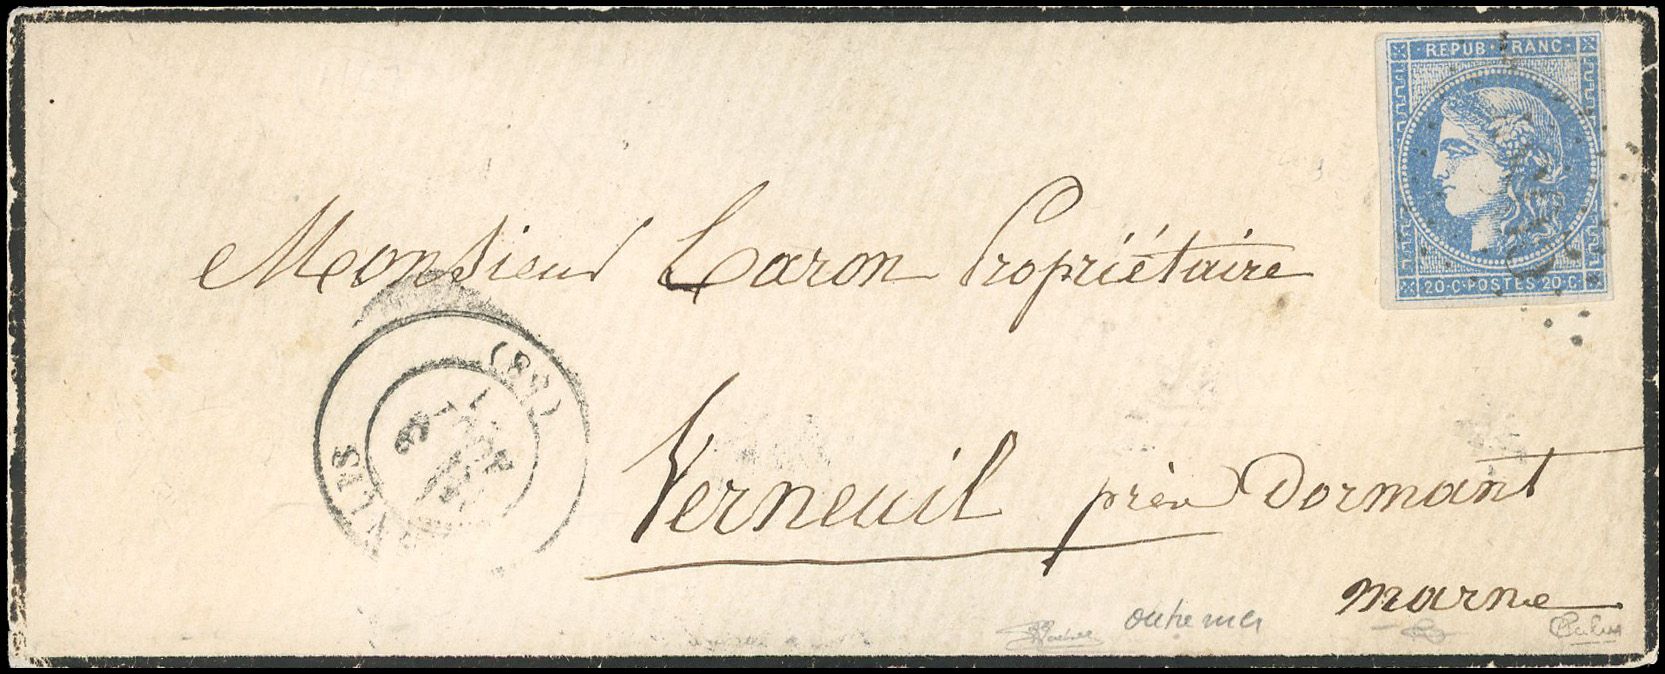 REPUB · FRANC ·
20 · C · POSTES 20 · C ·
Monsieur Caron Propriétaire
(88)
AOUT
Verneuil près Dormant
marne
outremer